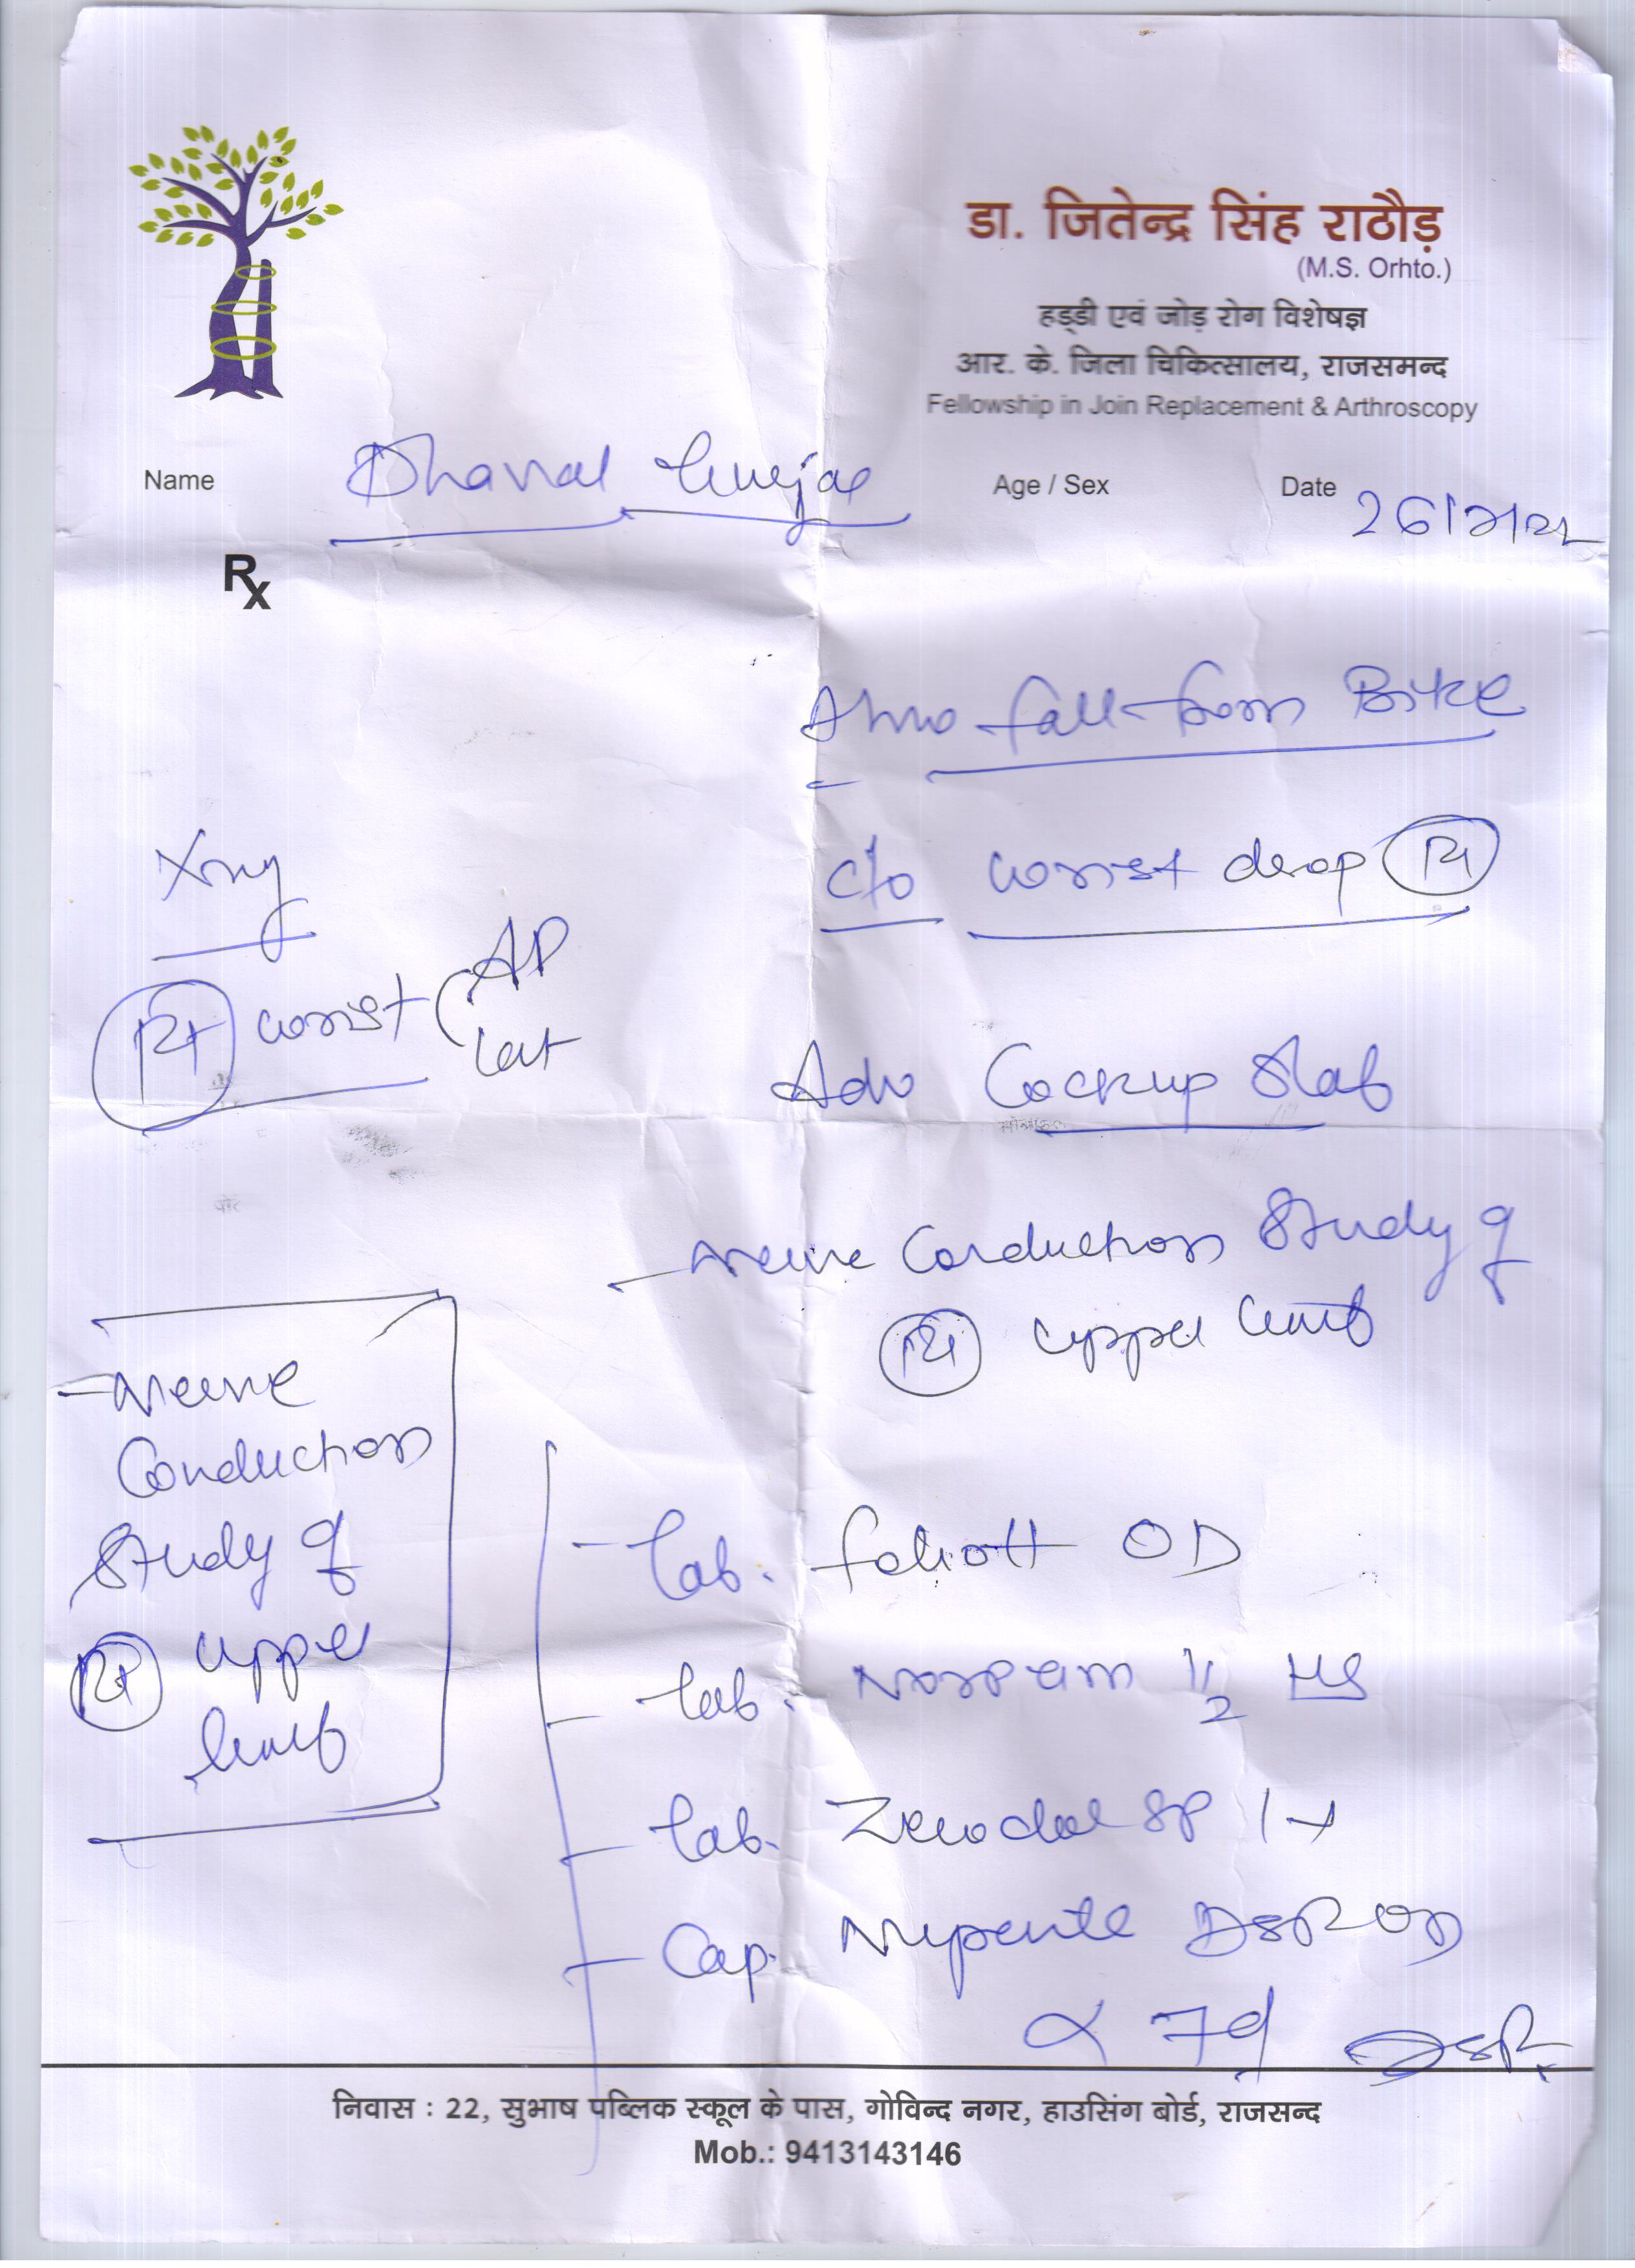 डा. जितेन्द्र सिंह राठौड़
(M.S. Orhto.)
हड्डी एवं जोड़ रोग विशेषज्ञ
आर. के. जिला चिकित्सालय, राजसमन्द
Fellowship in Join Replacement & Arthroscopy
Name Age / Sex Date
Rx
fall from Bike
c/o wrist drop Rt
Xray
Rt wrist AP
Lat
Adv Cockup Slab
- Nerve Conduction Study of
Rt upper limb
- Nerve
Conduction
Study of
Rt upper
limb
- Tab. OD
- Tab. 1/2 HS
- Tab. Zerodol SP 1
- Cap. DSR OD
x 7d
निवास : 22, सुभाष पब्लिक स्कूल के पास, गोविन्द नगर, हाउसिंग बोर्ड, राजसन्द
Mob.: 9413143146